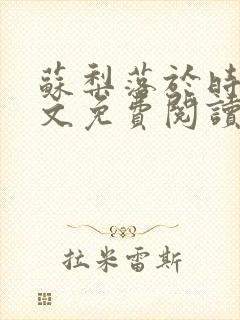 蘇梨落於時
文免費閱讀
拉米雷斯